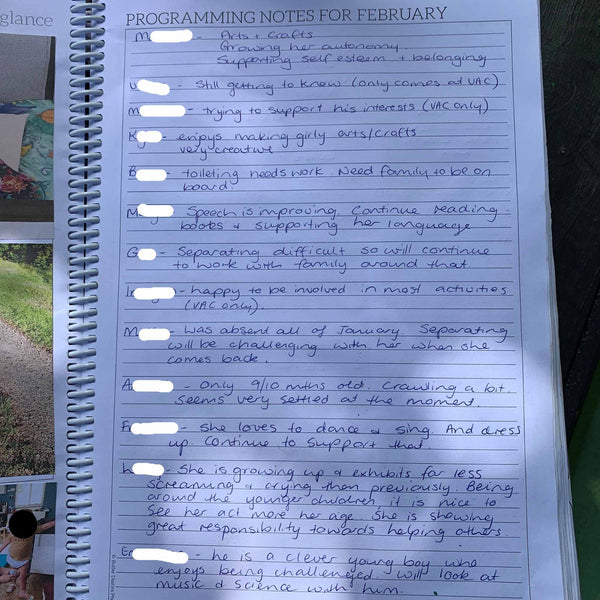 glance
PROGRAMMING NOTES FOR FEBRUARY
M - Arts + Crafts
Growing her autonomy.
Supporting self esteem + belonging
- Still getting to know (only comes at VAC)
M - trying to support his interests (VAC only)
Ky - enjoys making girly arts/crafts
very creative
B - toileting needs work. Need family to be on
board.
M - Speech is improving. Continue reading
books & supporting her language
G - Separating difficult so will continue
to work with family around that
- happy to be involved in most activities
(VAC only).
M - was absent all of January. Separating
will be challenging with her when she
comes back.
A - Only 9/10 mths old. Crawling a bit.
Seems very settled at the moment.
- she loves to dance & sing. And dress
up. Continue to support that.
L - She is growing up & exhibits far less
screaming & crying than previously. Being
around the younger children it is nice to
see her act more her age. She is showing
great responsibility towards helping others.
- he is a clever young boy who
enjoys being challenged. Will look at
music & science with him.